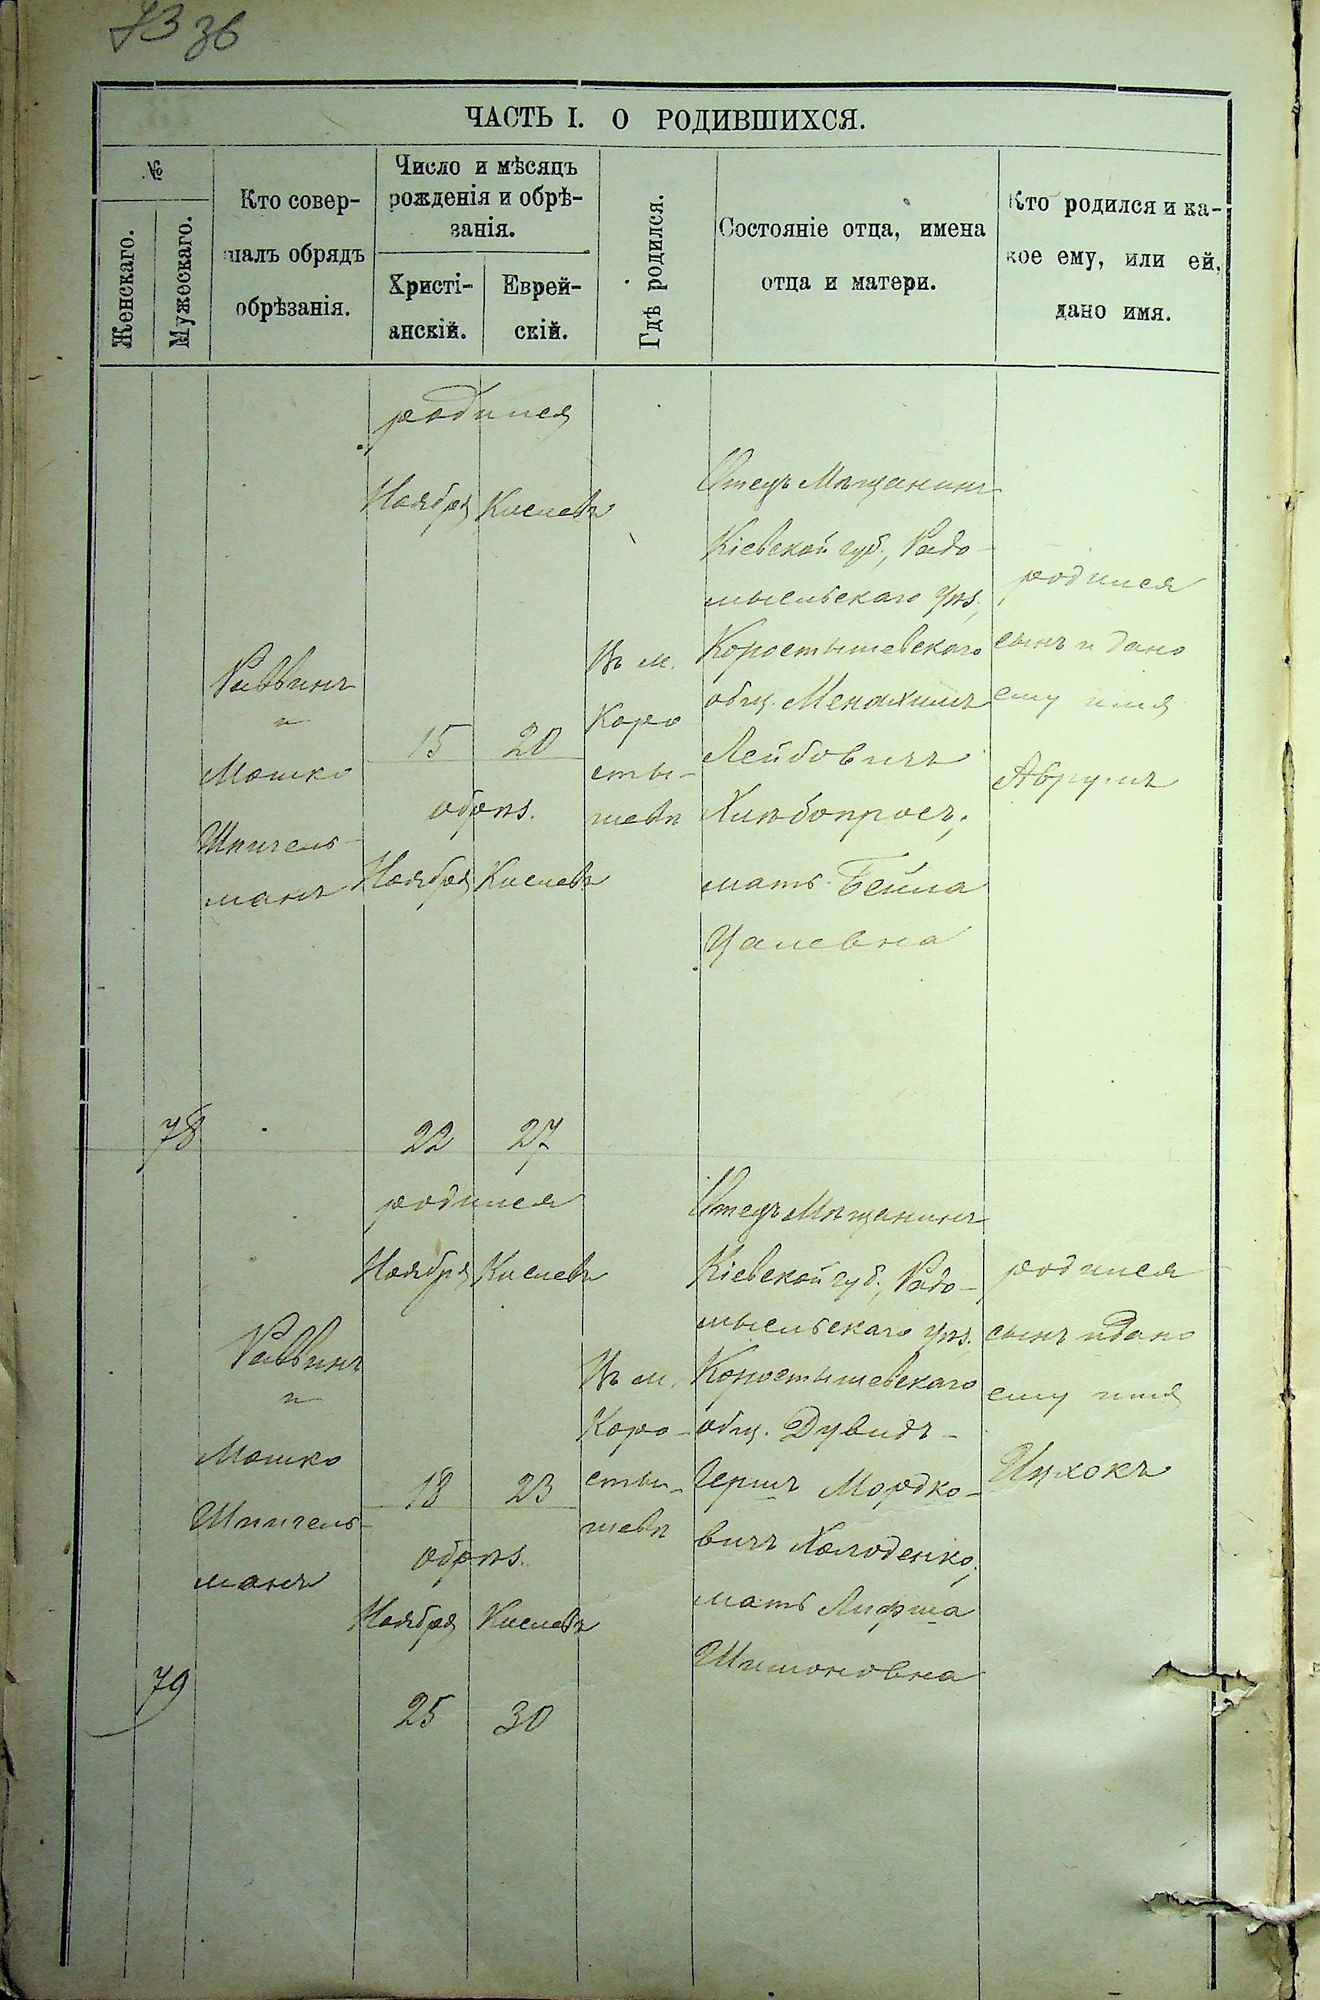 73 зв
ЧАСТЬ I. О РОДИВШИХСЯ.
№
Женскаго.
Мужескаго.
Кто совер-
шалъ обрядъ
обрѣзанія.
Число и мѣсяцъ
рожденія и обрѣ-
занія.
Христі-
анскій.
Еврей-
скій.
Гдѣ родился.
Состояніе отца, имена
отца и матери.
Кто родился и ка-
кое ему, или ей,
дано имя.
78
Раввинъ
и
Мошко
Шпигель-
манъ
родился
Ноября Кислевъ
15 20
обрѣз.
Ноября Кислевъ
22 27
Въ м.
Коро
сты-
шевѣ
Отецъ Мѣщанинъ
Кіевской губ., Радо-
мысльскаго уѣз.,
Коростышевскаго
общ. Менахимъ
Лейбовичъ
Хлѣбопросъ,
мать Бейла
Цалевна
родился
сынъ и дано
ему имя
Абрумъ
79
Раввинъ
и
Мошко
Шпигель-
манъ
родился
Ноября Кислевъ
18 23
обрѣз.
Ноября Кислевъ
25 30
Въ м.
Коро-
сты-
шевѣ
Отецъ Мѣщанинъ
Кіевской губ., Радо-
мысльскаго уѣз.
Коростышевскаго
общ. Дувидъ-
Гершъ Мордко-
вичъ Холоденко,
мать Лифша
Шимоновна
родился
сынъ и дано
ему имя
Ицхокъ